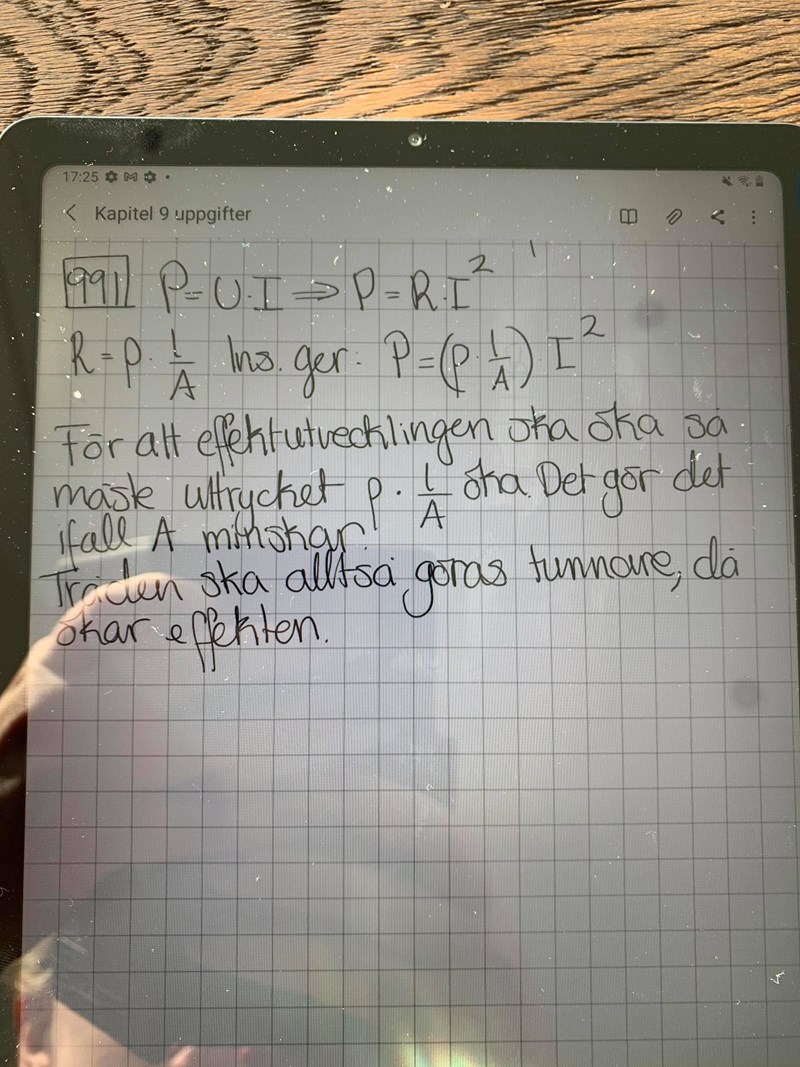 17:25
Kapitel 9 uppgifter
991 P=U·I ⇒ P=R·I²
R=ρ·l/A Ins. ger: P=(ρ·l/A)·I²
För att effektutvecklingen ska öka så
måste uttrycket ρ·l/A öka. Det gör det
ifall A minskar.
Tråden ska alltså göras tunnare, då
ökar effekten.